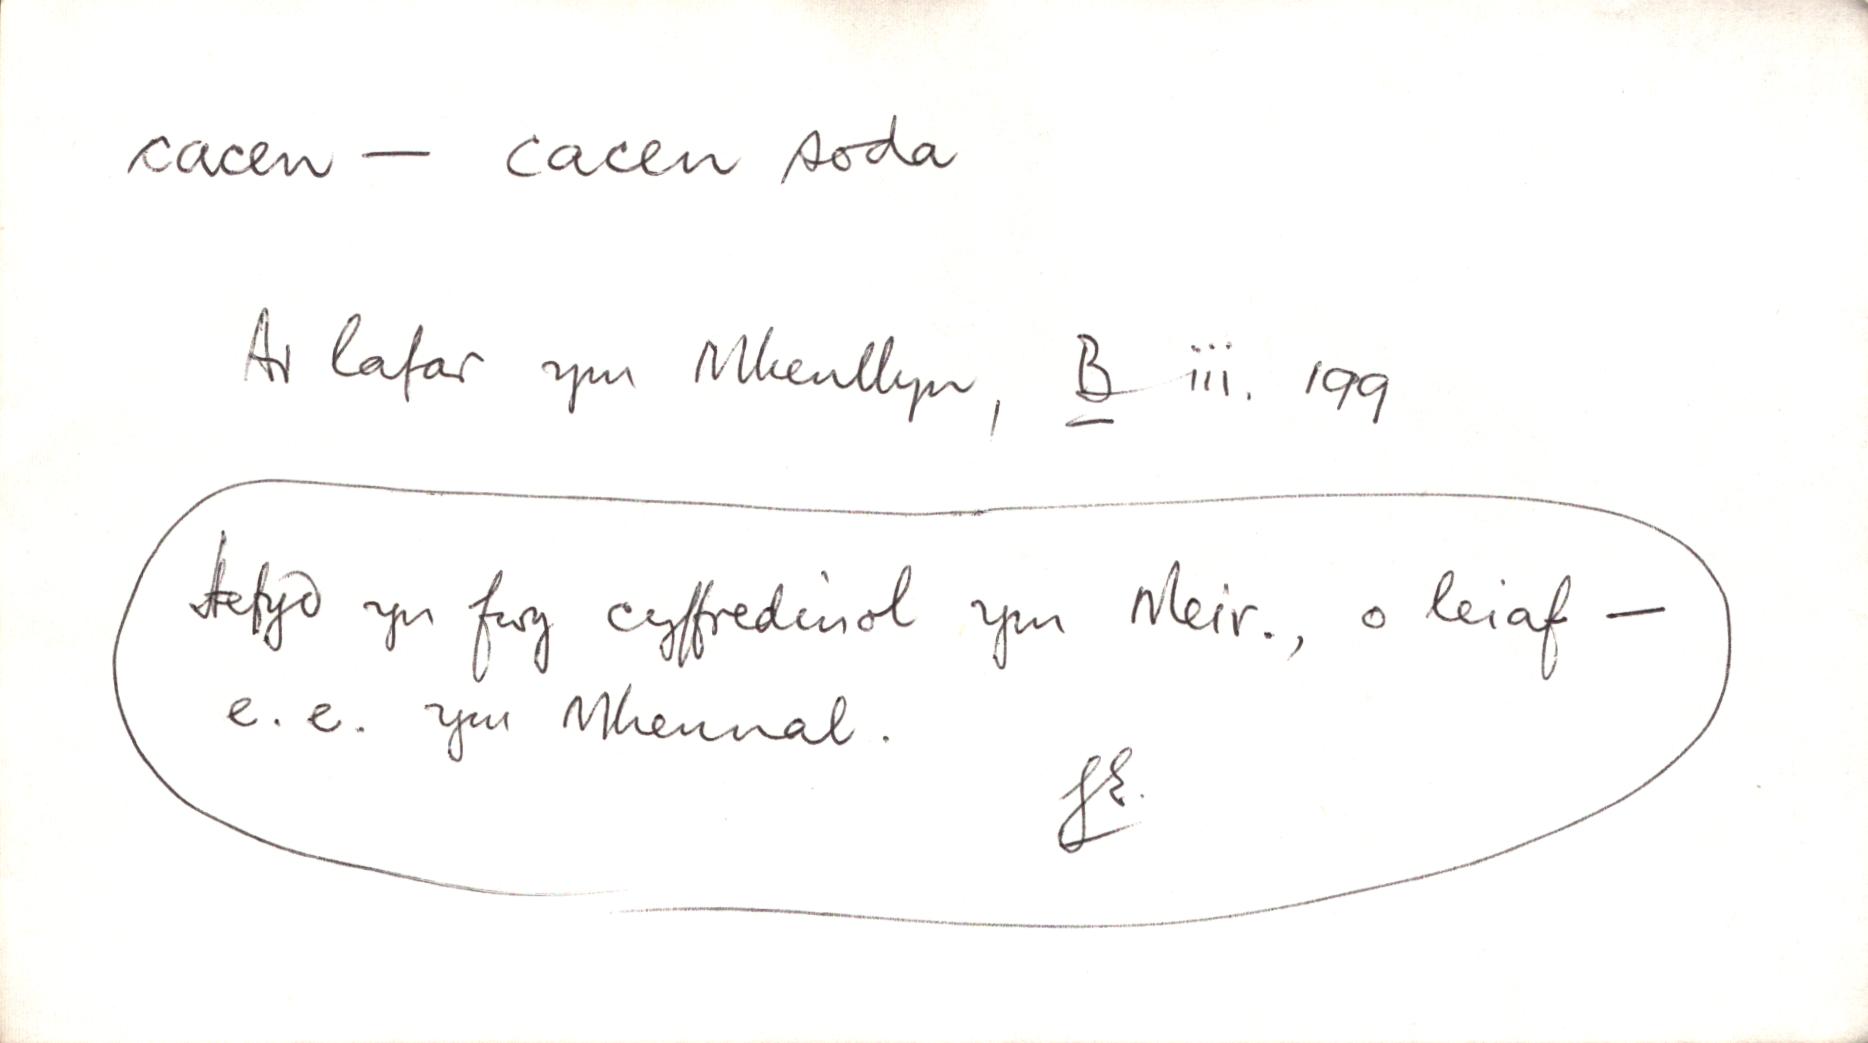 cacen — cacen soda
Ar lafar ym Mhenllyn, B iii. 199
Hefyd yn fwy cyffredinol ym Meir., o leiaf —
e.e. ym Mhennal.